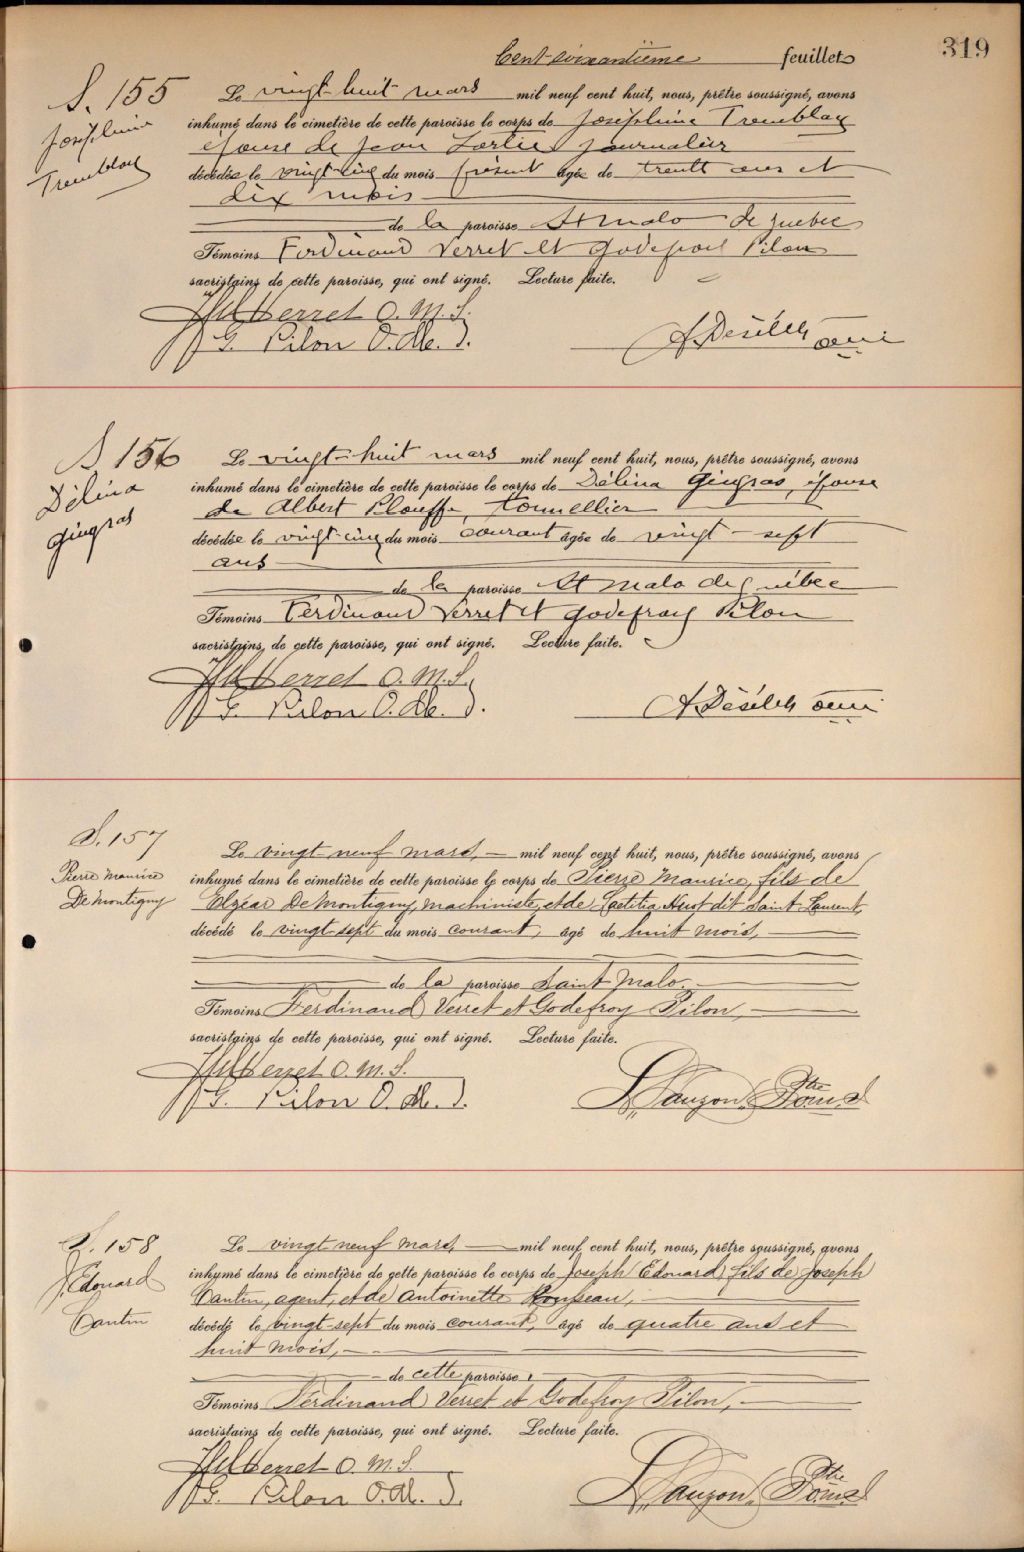 319
Cent-soixantième feuillet
S. 155
Joséphine
Tremblay
Le vingt-huit mars mil neuf cent huit, nous, prêtre soussigné, avons
inhumé dans le cimetière de cette paroisse le corps de Joséphine Tremblay
épouse de Jean Fortier journalier
décédée le vingt-cinq du mois présent agée de trente ans et
dix mois
de la paroisse St Malo de Quebec
Témoins Ferdinand Verret et Godefroi Pilon
sacristains de cette paroisse, qui ont signé. Lecture faite.
Verret O. M. I.
G. Pilon O. M. I.
A. Désilets omi
S 156
Délina
Gingras
Le vingt-huit mars mil neuf cent huit, nous, prêtre soussigné, avons
inhumé dans le cimetière de cette paroisse le corps de Délina Gingras, épouse
de Albert Plouffe, tonnellier
décédée le vingt-cinq du mois courant âgée de vingt-sept
ans
de la paroisse St Malo de Québec
Témoins Ferdinand Verret et Godefroy Pilon
sacristains de cette paroisse, qui ont signé. Lecture faite.
Verret O. M. I.
G. Pilon O. M. I.
A. Désilets omi
S. 157
Pierre Maurice
De Montigny
Le vingt-neuf mars, mil neuf cent huit, nous, prêtre soussigné, avons
inhumé dans le cimetière de cette paroisse le corps de Pierre Maurice, fils de
Elzéar De Montigny, machiniste, et de Laetitia Huot dit Saint-Laurent,
décédé le vingt-sept du mois courant, âgé de huit mois,
de la paroisse Saint Malo.
Témoins Ferdinand Verret et Godefroy Pilon,
sacristains de cette paroisse, qui ont signé. Lecture faite.
Verret O. M. I.
G. Pilon O. M. I.
L. Lauzon, Ptre O.m.I
S. 158
J. Edouard
Cantin
Le vingt-neuf mars, mil neuf cent huit, nous, prêtre soussigné, avons
inhumé dans le cimetière de cette paroisse le corps de Joseph Edouard, fils de Joseph
Cantin, agent, et de Antoinette Rousseau,
décédé le vingt-sept du mois courant, âgé de quatre ans et
huit mois,
de cette paroisse.
Témoins Ferdinand Verret et Godefroy Pilon,
sacristains de cette paroisse, qui ont signé. Lecture faite.
Verret O. M. I.
G. Pilon O. M. I.
L. Lauzon, Ptre O.m.I